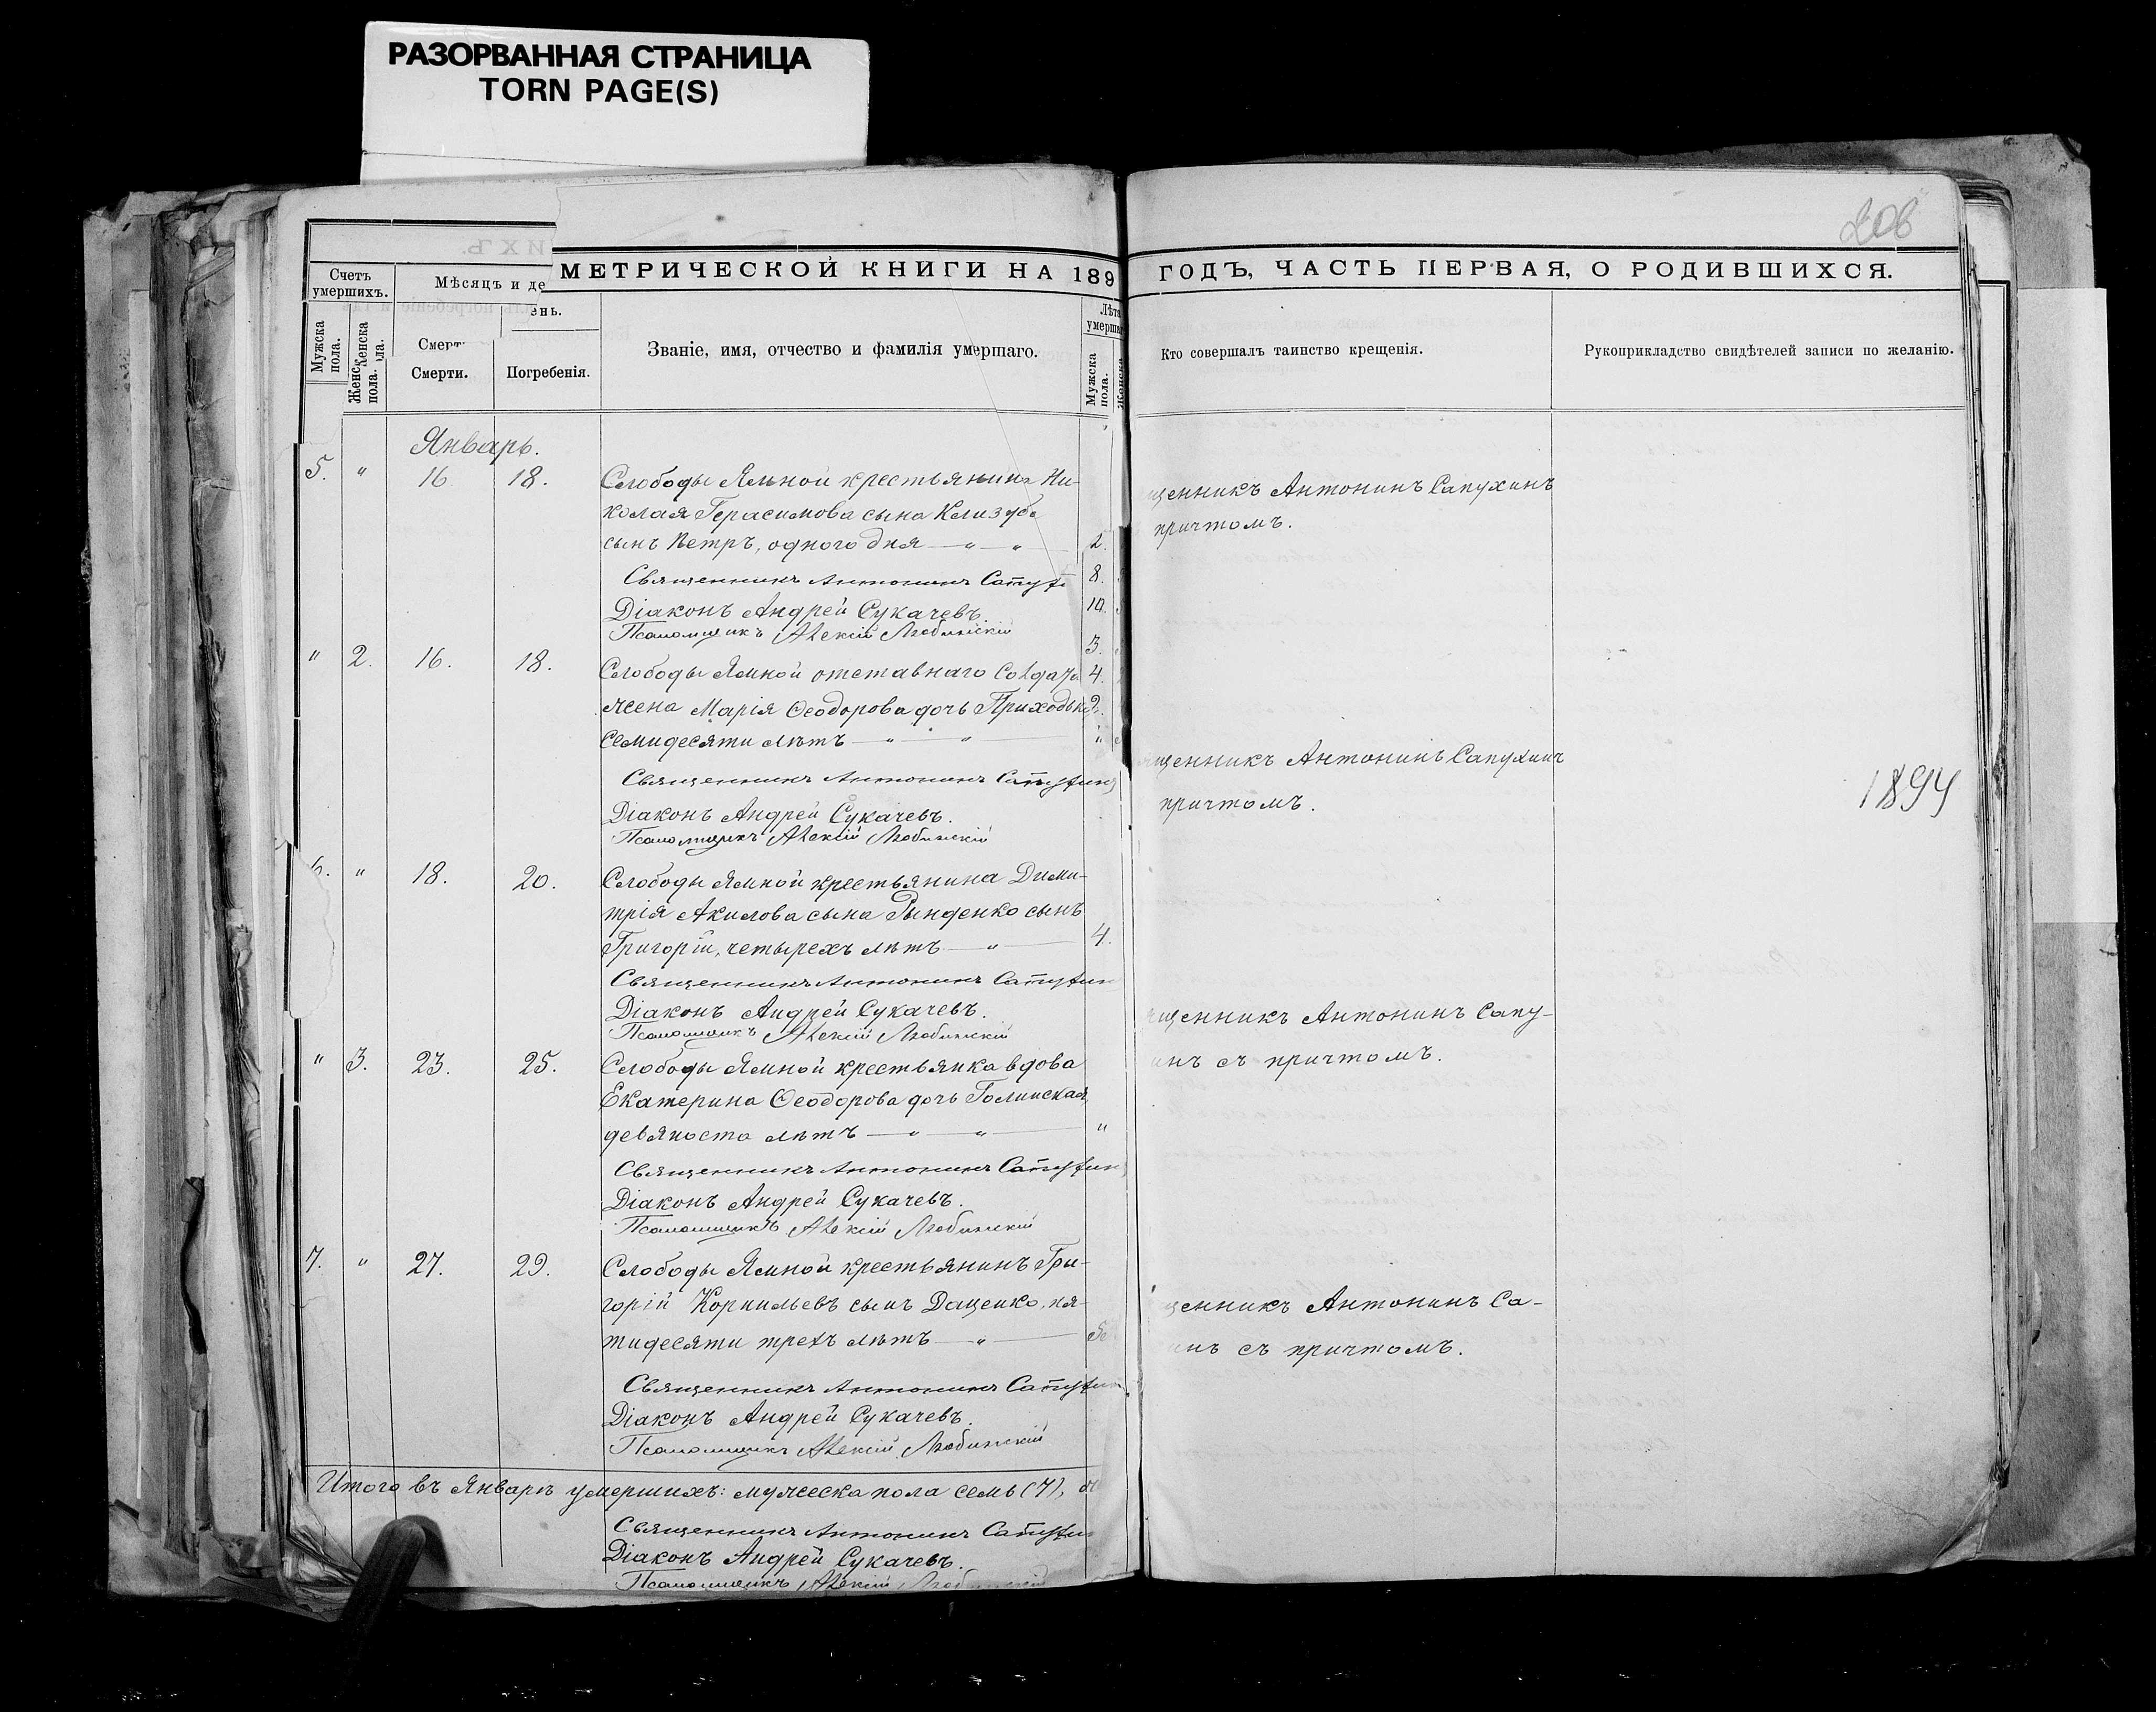 РАЗОРВАННАЯ СТРАНИЦА
TORN PAGE(S)
МЕТРИЧЕСКОЙ КНИГИ НА 189
Счетъ умершихъ.
Мѣсяцъ и де
ень.
Мужска пола.
Женска пола.
Смерти.
Погребенія.
Званіе, имя, отчество и фамилія умершаго.
Лѣта
Мужска пола.
Январь.
5. " 16 18. Слободы Ямной крестьянина Ни-
колая Герасимова сына
сынъ Петръ, одного дня — " — " 2.
Священникъ Антонинъ
8.
Діаконъ Андрей Сукачевъ.
10.
Псаломщикъ Алексій Любинскій
3.
" 2. 16. 18. Слободы Ямной отставнаго солдата 4.
жена Марія Ѳеодорова дочь Приходько 2.
семидесяти лѣтъ — " — " "
Священникъ Антонинъ Сапухинъ
Діаконъ Андрей Сукачевъ.
Псаломщикъ Алексій Любинскій
6. " 18. 20. Слободы Ямной крестьянина Дими-
трія Акилова сына Рынденко сынъ
Григорій, четырехъ лѣтъ — " 4.
Священникъ Антонинъ Сапухин
Діаконъ Андрей Сукачевъ.
Псаломщикъ Алексій Любинскій
" 3. 23. 25. Слободы Ямной крестьянка вдова
Екатерина Ѳеодорова дочь Голинская,
девяноста лѣтъ — " — " "
Священникъ Антонинъ Сапухин
Діаконъ Андрей Сукачевъ.
Псаломщикъ Алексій Любинскій
7. " 27. 29. Слободы Ямной крестьянинъ Гри-
горій Корнильевъ сынъ Даценко, пя-
тидесяти трехъ лѣтъ — "
Священникъ Антонинъ Сапухин
Діаконъ Андрей Сукачевъ.
Псаломщикъ Алексій Любинскій
Итого въ Январѣ умершихъ: мужеска пола семь (7),
Священникъ Антонинъ Сапухин
Діаконъ Андрей Сукачевъ.
Псаломщикъ Алексій Любинскій
206
ГОДЪ, ЧАСТЬ ПЕРВАЯ, О РОДИВШИХСЯ.
Кто совершалъ таинство крещенія.
Рукоприкладство свидѣтелей записи по желанію.
щенникъ Антонинъ Сапухинъ
причтомъ.
щенникъ Антонинъ Сапухинъ
причтомъ.
1894
щенникъ Антонинъ Сапу-
инъ съ причтомъ.
щенникъ Антонинъ Са-
инъ съ причтомъ.